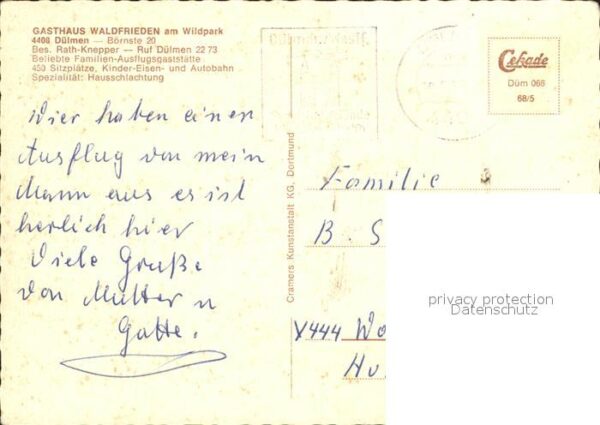 GASTHAUS WALDFRIEDEN am Wildpark
4408 Dülmen — Börnste 20
Bes. Rath-Knepper — Ruf Dülmen 22 73
Beliebte Familien-Ausflugsgaststätte
450 Sitzplätze, Kinder-Eisen- und Autobahn
Spezialität: Hausschlachtung
Cekade
Düm 066
68/5
Wier haben einen
Ausflug von mein
Mann aus es ist
herlich hier
Viele Gruße
von Mutter u
Gatte.
Cramers Kunstanstalt KG, Dortmund
Familie
B. S
444
privacy protection
Datenschutz